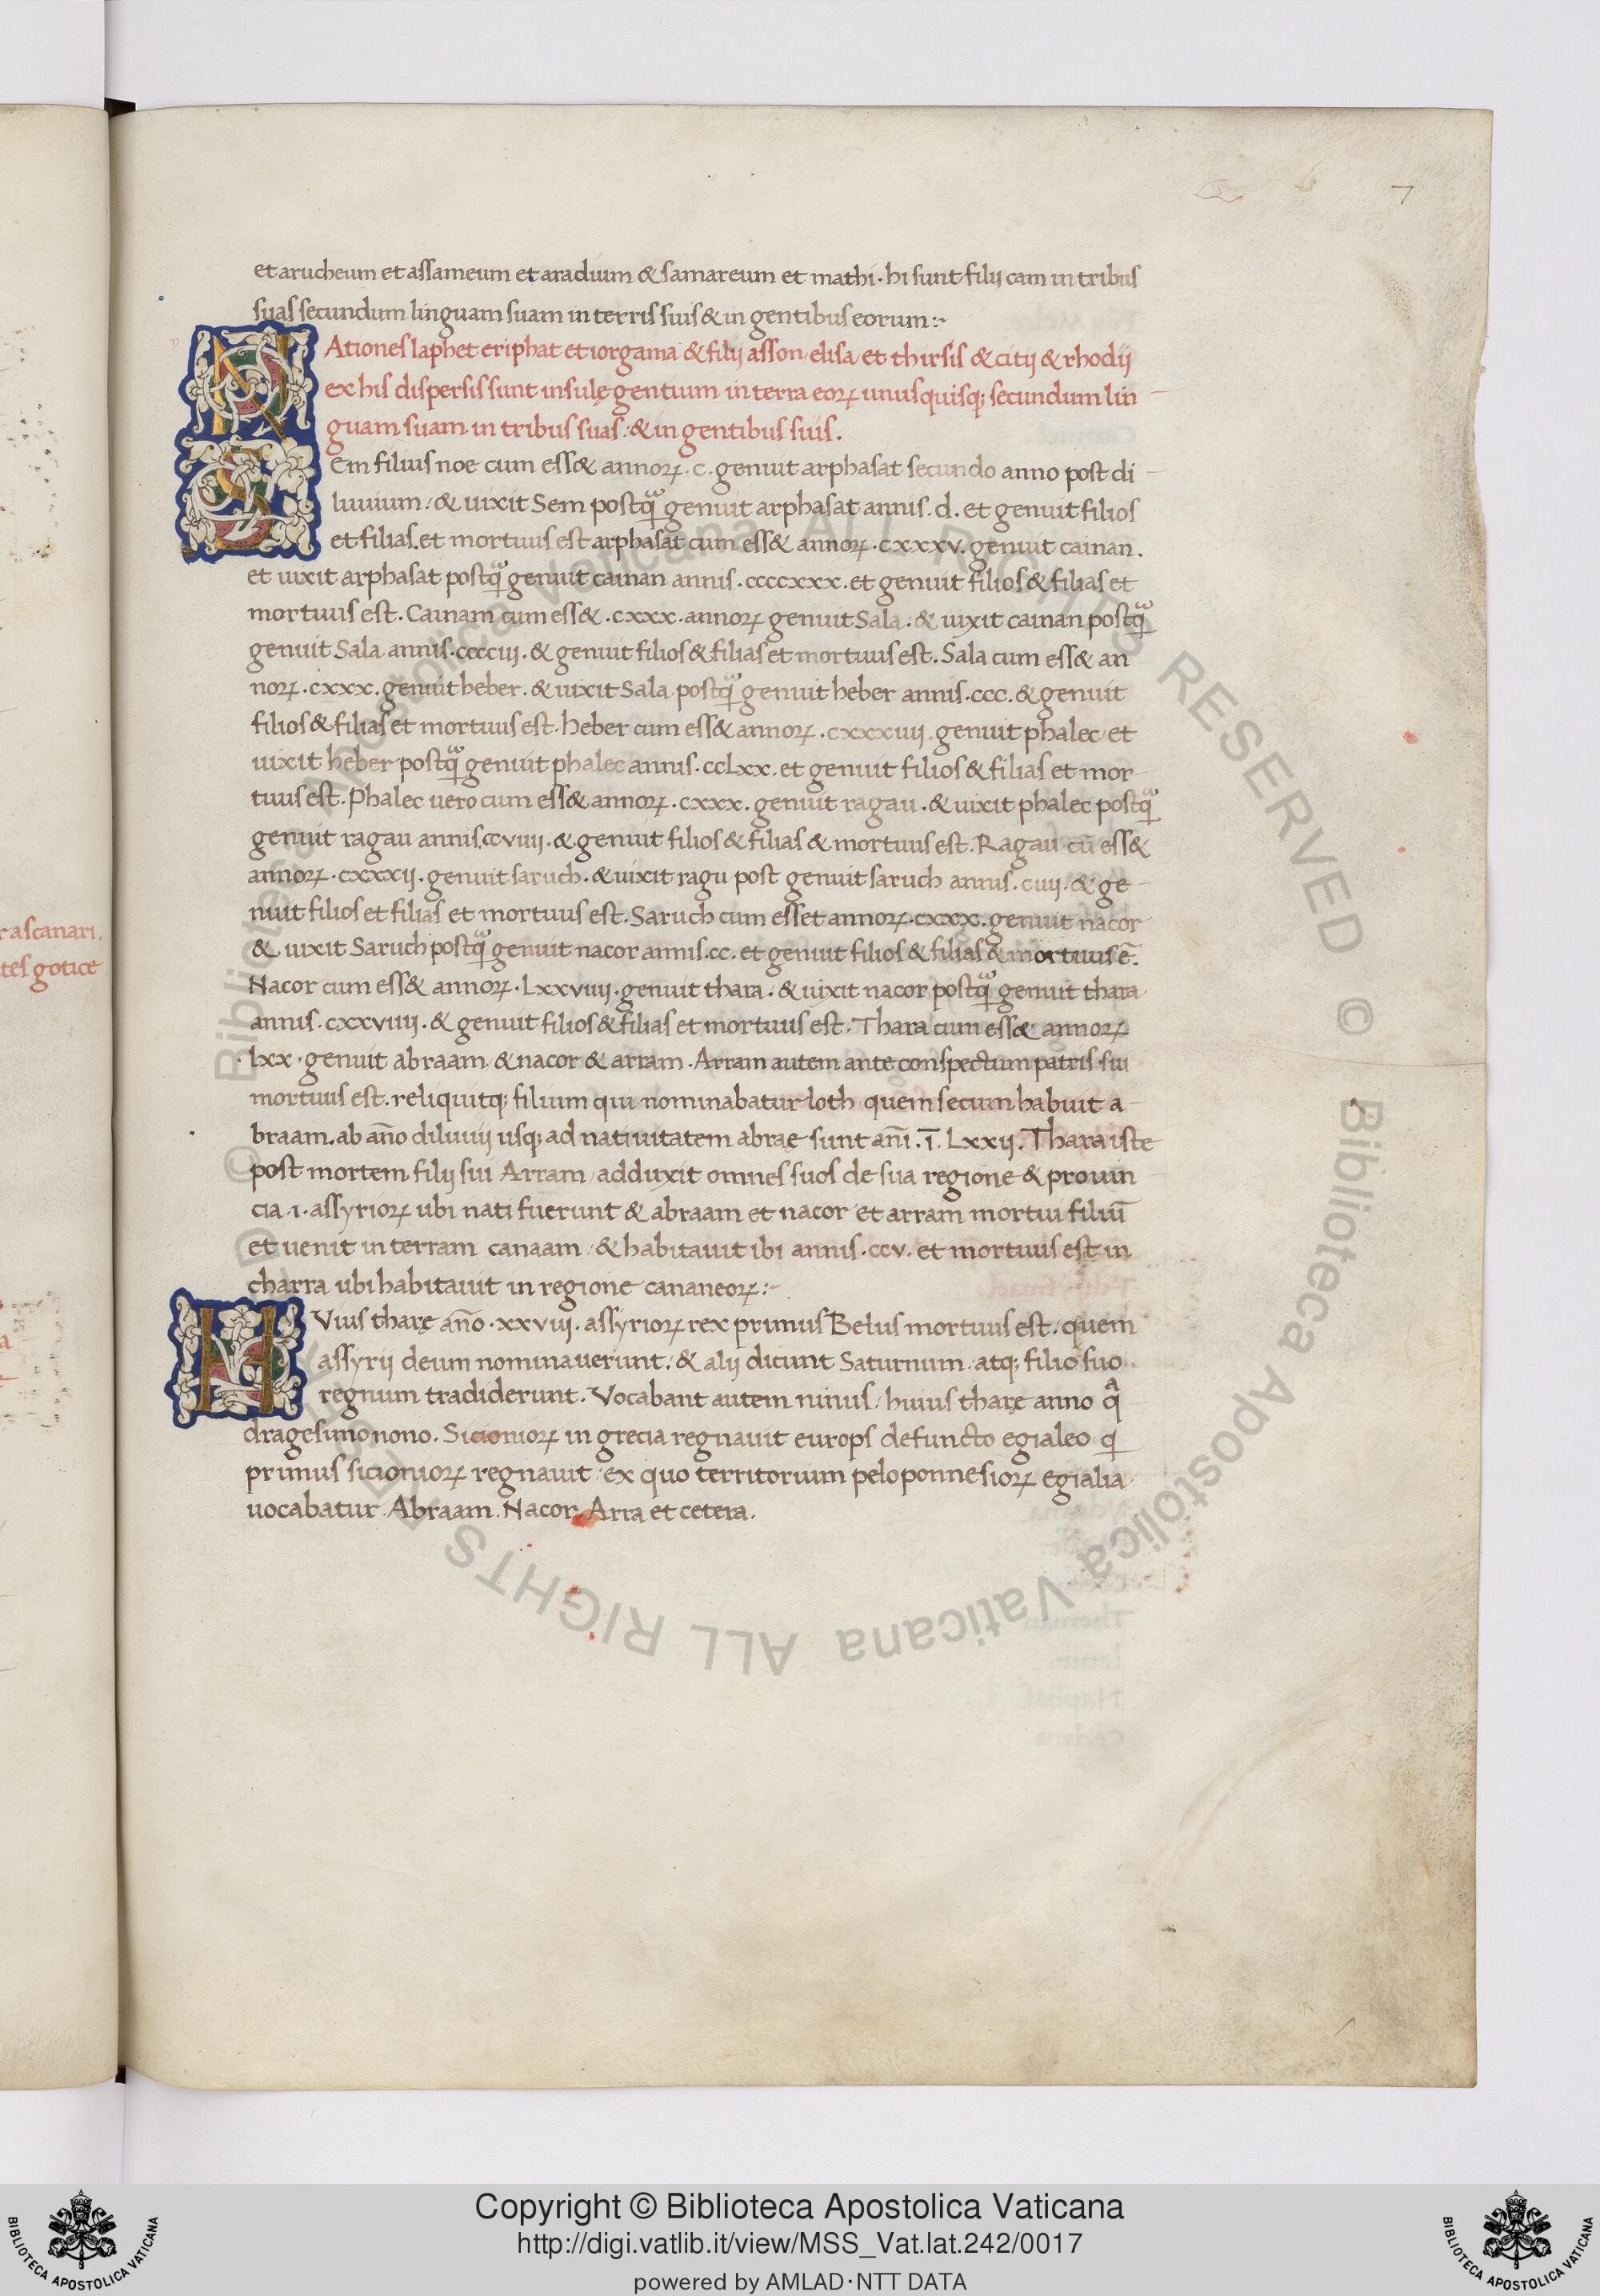 7
et arucheum et assameum et aradium & samareum et mathi · hi sunt filij cam in tribus
suas secundum linguam suam in terris suis & in gentibus eorum :~
NAtiones Iaphet eriphat et iorgama & filij asson / elisa / et thirsis & citij & rhodij
ex his dispersis sunt insulę gentium in terra eoꝝ unusquisq; secundum lin
guam suam in tribus suas : & in gentibus suis .
SEm filius noe cum ess& annoꝝ . c . genuit arphasat secundo anno post di
luuium : & uixit Sem postꝙ̃ genuit arphasat annis . d . et genuit filios
et filias . et mortuus est arphasat cum ess& annoꝝ . cxxxv . genuit cainan .
et uixit arphasat postꝙ̃ genuit cainan annis . ccccxxx . et genuit filios & filias et
mortuus est . Cainam cum ess& . cxxx . annoꝝ genuit Sala . & uixit cainan postꝙ̃
genuit Sala annis . cccciii . & genuit filios & filias et mortuus est . Sala cum ess& an
noꝝ . cxxx . genuit heber . & uixit Sala postꝙ̃ genuit heber annis . ccc . & genuit
filios & filias et mortuus est . heber cum ess& annoꝝ . cxxxiiij . genuit phalec / et
uixit heber postꝙ̃ genuit phalec annis . ccLxx . et genuit filios & filias et mor
tuus est . Phalec uero cum ess& annoꝝ . cxxx . genuit ragau . & uixit phalec postꝙ̃
genuit ragau annis . ccviiij . & genuit filios & filias & mortuus est . Ragau cū ess&
annoꝝ . cxxxij . genuit saruch . & uixit ragu post genuit saruch annis . ciiij . & ge
nuit filios et filias et mortuus est . Saruch cum esset annoꝝ . cxxx . genuit nacor
& uixit Saruch postꝙ̃ genuit nacor annis . cc . et genuit filios & filias & mortuus ē .
Nacor cum ess& annoꝝ . Lxxviiij . genuit thara . & uixit nacor postꝙ̃ genuit thara
annis . cxxviiij . & genuit filios & filias et mortuus est . Thara cum ess& annoꝝ
. lxx . genuit abraam & nacor & arram . Arram autem ante conspectum patris sui
mortuus est . reliquitq; filium qui nominabatur loth quem secum habuit a
braam . ab an̄o diluuij usq; ad natiuitatem abraę sunt an̄i . ī . Lxxij . Thara iste
post mortem filij sui Arram / adduxit omnes suos de sua regione & prouin
cia .i. assyrioꝝ ubi nati fuerunt & abraam et nacor et arram mortui filiū
et uenit in terram canaam / & habitauit ibi annis . ccv . et mortuus est in
charra ubi habitauit in regione cananeoꝝ :~
HVius tharę an̄o . xxviii . assyrioꝝ rex primus Belus mortuus est . quem
assyrij deum nominauerunt . & alij dicunt Saturnum / atq; filio suo
regnum tradiderunt . Vocabant autem ninus / huius tharę anno qᵃ
dragesimo nono . Sicionioꝝ in grecia regnauit europs defuncto egialeo ꝗ
primus sicionioꝝ regnauit / ex quo territorium peloponnesioꝝ egialia
uocabatur . Abraam . Nacor . Arra et cetera .
r ascanari .
tes gotice
© Biblioteca Apostolica Vaticana ALL RIGHTS RESERVED © Biblioteca Apostolica Vaticana ALL RIGHTS RESERVED
Copyright © Biblioteca Apostolica Vaticana
http://digi.vatlib.it/view/MSS_Vat.lat.242/0017
powered by AMLAD·NTT DATA
BIBLIOTECA APOSTOLICA VATICANA
BIBLIOTECA APOSTOLICA VATICANA